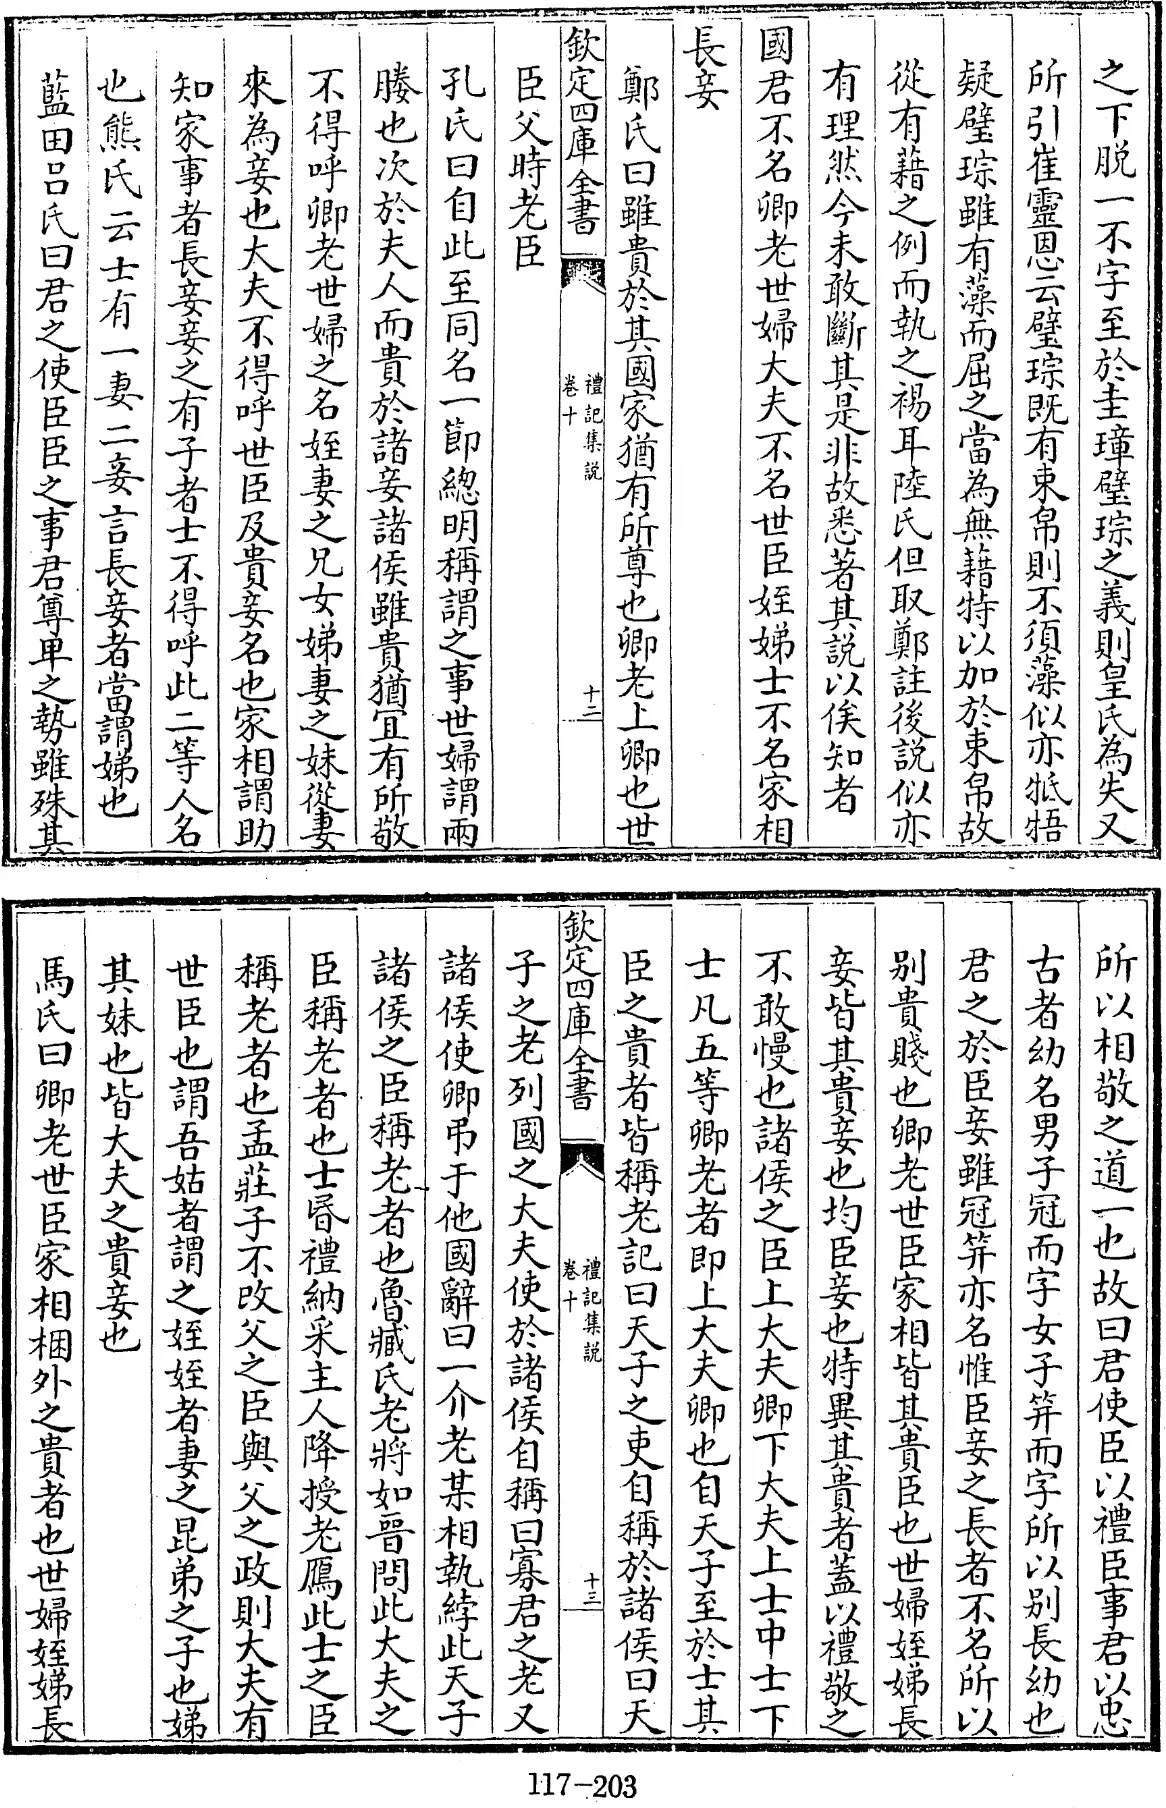 之下脱一不字至於圭璋璧琮之義則皇氏為失又
所引崔靈恩云璧琮既有束帛則不須藻似亦牴牾
疑璧琮雖有藻而屈之當為無藉特以加於束帛故
從有藉之例而執之裼耳陸氏但取鄭註後說似亦
有理然今未敢斷其是非故悉著其說以俟知者
國君不名卿老世婦大夫不名世臣姪娣士不名家相
長妾
鄭氏曰雖貴於其國家猶有所尊也卿老上卿也世
欽定四庫全書
禮記集說
卷十
十二
臣父時老臣
孔氏曰自此至同名一節總明稱謂之事世婦謂兩
媵也次於夫人而貴於諸妾諸侯雖貴猶宜有所敬
不得呼卿老世婦之名姪妻之兄女娣妻之妹從妻
來為妾也大夫不得呼世臣及貴妾名也家相謂助
知家事者長妾妾之有子者士不得呼此二等人名
也熊氏云士有一妻二妾言長妾者當謂娣也
藍田吕氏曰君之使臣臣之事君尊卑之勢雖殊其
所以相敬之道一也故曰君使臣以禮臣事君以忠
古者幼名男子冠而字女子笄而字所以別長幼也
君之於臣妾雖冠笄亦名惟臣妾之長者不名所以
別貴賤也卿老世臣家相皆其貴臣也世婦姪娣長
妾皆其貴妾也均臣妾也特異其貴者蓋以禮敬之
不敢慢也諸侯之臣上大夫卿下大夫上士中士下
士凡五等卿老者即上大夫卿也自天子至於士其
臣之貴者皆稱老記曰天子之吏自稱於諸侯曰天
欽定四庫全書
禮記集說
卷十
十三
子之老列國之大夫使於諸侯自稱曰寡君之老又
諸侯使卿弔于他國辭曰一介老某相執綍此天子
諸侯之臣稱老者也魯臧氏老將如晉問此大夫之
臣稱老者也士昏禮納采主人降授老鴈此士之臣
稱老者也孟莊子不改父之臣與父之政則大夫有
世臣也謂吾姑者謂之姪姪者妻之昆弟之子也娣
其妹也皆大夫之貴妾也
馬氏曰卿老世臣家相梱外之貴者也世婦姪娣長
117-203